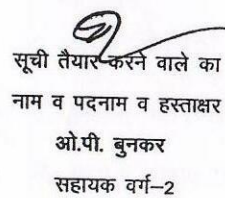 सूची तैयार करने वाले का
नाम व पदनाम व हस्ताक्षर
ओ.पी. बुनकर
सहायक वर्ग–2